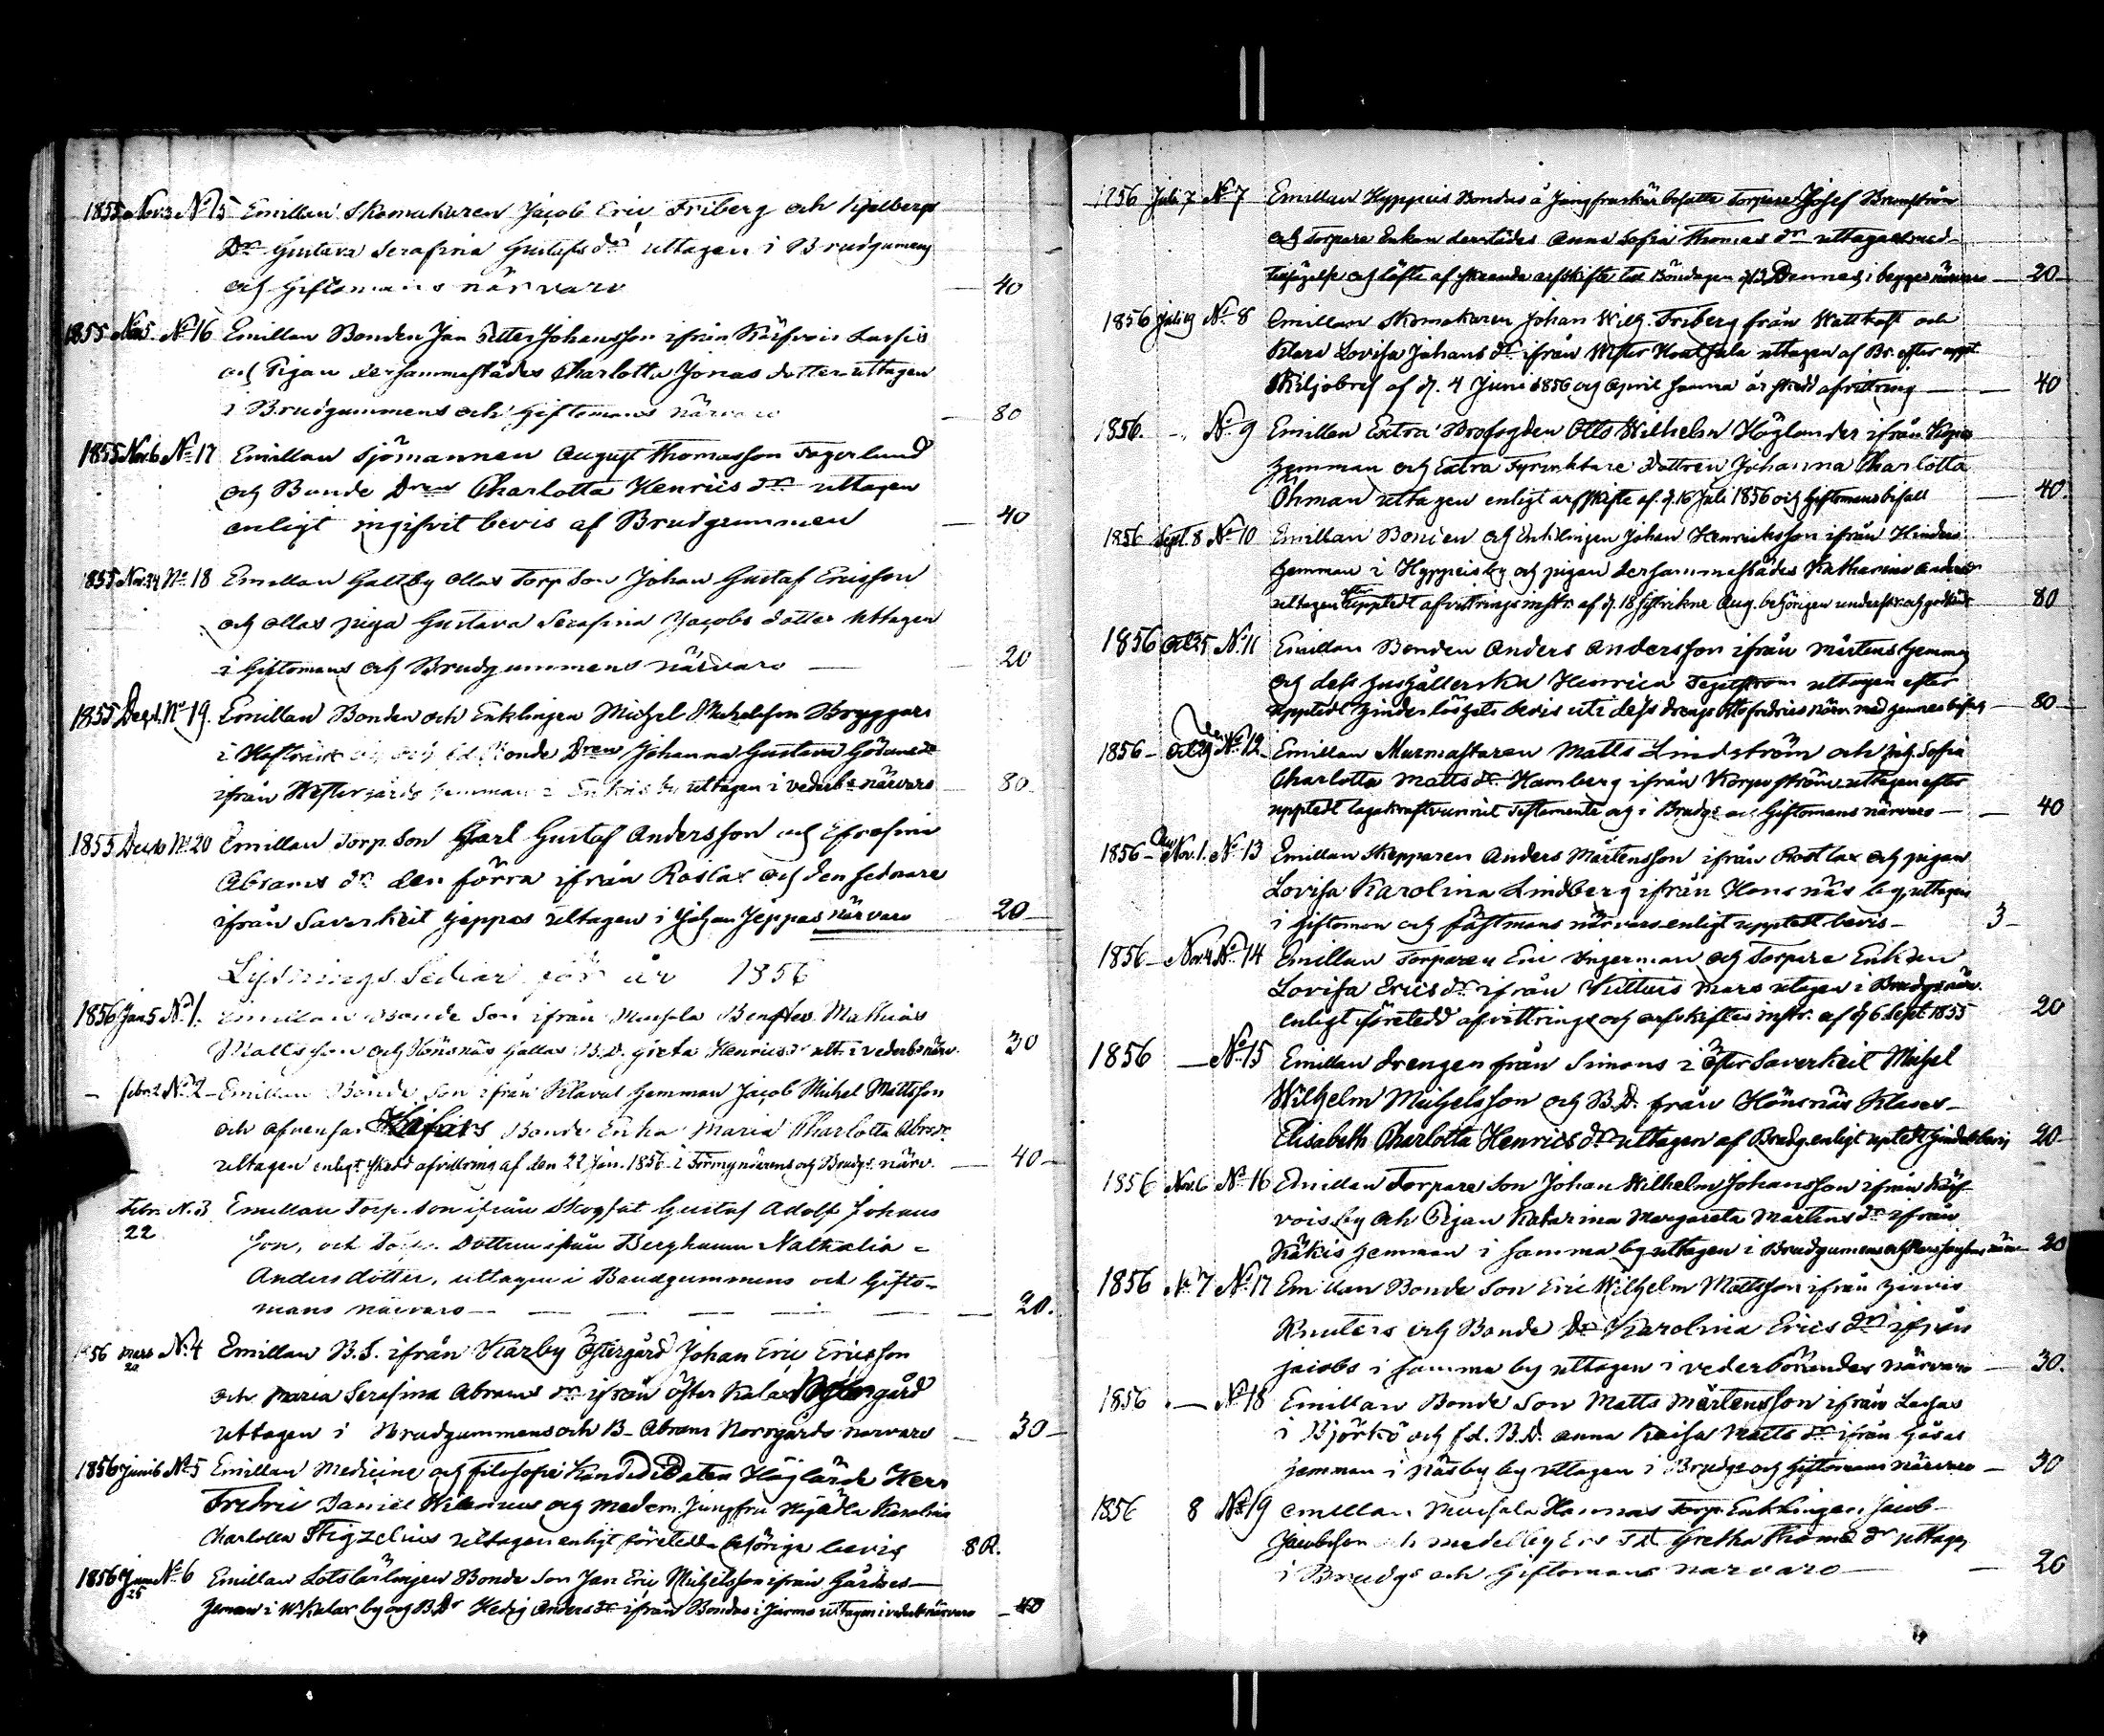 1855 Nov. 3 No 15 Emillan Skomakaren Jacob Eric Friberg och Kjelbergs
Dr Gustava Serafina Gustafs dr uttagen i Brudgumens
och Giftomans närvaro — 40
1855 Nov. 5. No 16 Emillan Bonden Jan Petter Johansson ifrån Käfvois Lassis
och Pigan dersammastädes Charlotta Jonas dotter uttagen
i Brudgummens och Giftomans närvaro — 80
1855 Nov. 6 No 17 Emillan Sjömannen August Thomasson Fagerlund
och Bonde Dren Charlotta Henrics dr uttagen
enligt ingifvit bevis af Brudgummen — 40
1855 Nov. 24 No 18 Emillan Galtby Ollas Torp Son Johan Gustaf Ericsson
och Ollas piga Gustava Serafina Jacobs dotter uttagen
i Giftomans och Brudgummens närvaro — 20
1855 Dec. 1. No 19. Emillan Bonden och Enklingen Michel Michelsson Bryggars
i och Bonde Dren Johanna Gustava
ifrån Westergårds hemman i uttagen i vederb. närvaro — 80
1855 Dec. 10 No 20 Emillan Torp. Son Carl Gustaf Andersson och Efrosina
Abrams dr den förra ifrån Roslax och den sednare
ifrån Saverkeit Jeppas uttagen i Johan Jeppas närvaro 20 —
Lysnings Sedlar för år 1856
1856 Jan. 5 No 1. Emillan Bonde Son ifrån Mussala Mathias
Mattsson och Hönsnäs Gallas B.D. Greta Henrics dr utt. i vederbs närv. 30
— Febr. 2 No 2 — Emillan Bonde Son ifrån Klavas hemman Jacob Michel Mattsson
och Bonde Enka Maria Charlotta Abr. dr
uttagen enligt skedd afvittring af den 22 Jan. 1856 i Förmyndarens och Brudgs närv. — 40 —
Febr. 22 N. 3 Emillan Torp. Son ifrån Gustaf Adolf Johans
Son, och Dottren ifrån Berghamn Nathalia =
Andersdotter, uttagen i Brudgummens och Gifto-
mans närvaro — — — — — 20.
1856 Mars 22 No 4 Emillan B.S. ifrån Karby Östergård Johan Eric Ericsson
och Maria Serafina Abrams dr ifrån Öster Kalax
uttagen i Brudgummens och B. Abram Norrgårds närvaro — 30 —
1856 Juni 6 No 5 Emillan Medicine och filosofie Kandidaten Höglärde Herr
Fredric Daniel och madem. Jungfru Karolina
Charlotta Stigzelius uttagen enligt företedde behörige bevis 8 R.
1856 Juni 25 No 6 Emillan Lotslärlingen Bonde Son Jan Eric Michelsson ifrån Gårdses —
heman i W. Kalax by och B.Dr Hedvig Anders dr ifrån Bondas i Jurmo uttagen i vederb. närvaro — 40
1856 Juli 7 No 7 Emillan Hyppeis Bondas å Jungfruskär besutta Torpare Josef Brunström
och Torpare Enkan derstädes Anna Sofia Thomas dr uttagen med
och löfte af skeende arfskifte till Söndagen d. 13 Dennes, i begges närvaro — 20 —
1856 Juli No 8 Emillan Skomakaren Johan Wilh. Friberg från Wattkast och
Klara Lovisa Johans dr ifrån Wester Houtskala uttagen af Br. efter uppt
Skiljobref af d. 4 Juni 1856 och April samma år skedd afvittring — 40
1856. — No 9 Emillan Extra Brofogden Otto Wilhelm Höglander ifrån
hemman och Extra Fyrvaktare Dottren Johanna Charlotta
Öhman uttagen enligt arfskifte af d. 16 Juli 1856 och Giftomans befall — 40
1856 Sept. 8 No 10 Emillan Bonden och Enklingen Johan Henricksson ifrån Hinders
hemman i Hyppeis by och pigan dersammastädes Katharina Anders
uttagen efter upptedt afvittringsinstr. af d. 18 Aug. behörigen underskr. och godkänt 80
1856 Oct. 25 No 11 Emillan Bonden Anders Andersson ifrån Mårtens hemman
och dess hushållerska Henrica uttagen efter
upptedt hinderlöshets bevis uti dess drengs Otto Fredrics närv. med hennes befall. — 80 —
1856 — Oct. 29 No 12 Emillan Murmästaren Matts Lindström och pig. Sofia
Charlotta Matts dr Hamberg ifrån Korpoström uttagen efter
upptedt lagakraftvunnit Testamente och i Brudgs och Giftomans närvaro — 40
1856 — Nov. 1. No 13 Emillan Skepparen Anders Mårtensson ifrån Rostlax och pigan
Lovisa Karolina Lindberg ifrån Hönsnäs by, uttagen
i Giftoman och fästmans närvaro enligt upptedt bevis — 3 —
1856 — Nov. 4 No 14 Emillan Torparen Eric och Torpare Enkan
Lovisa Erics dr ifrån Kittuis Mars uttagen i Brudgs närv.
enligt företedd afvittrings och arfskiftes instr. af d. 6 Sept. 1855 20
1856 — No 15 Emillan drengen från Simons i Öster Saverkeit Michel
Wilhelm Michelsson och B.D. från Hönsnäs Klases —
Elisabeth Charlotta Henrics dr uttagen af Brudg. enligt uptedt hindersbevis 20 —
1856 Nov. 6 No 16 Emillan Torpare Son Johan Wilhelm Johansson ifrån Käf-
vois by och Pigan Katarina Margareta Mårtens dr ifrån
Käkis hemman i samma by uttagen i Brudgumens och närv. — 20
1856 N. 7 No 17 Emillan Bonde Son Eric Wilhelm Mattsson ifrån
Knuters och Bonde Dr Karolina Erics dr ifrån
Jacobs i samma by uttagen i vederbörandes närvaro — 30.
1856 — No 18 Emillan Bonde Son Matts Mårtensson ifrån Lassas
i Björkö och f.d. B.D. Anna Kaisa Matts dr ifrån Gåsas
hemman i Näsby by uttagen i Brudgs och Giftomans närvaro — 30
1856 8 No 19 Emillan Mussala Hannas Torp. Enklingen Jacob
Jacobsson och Medelby Ers Gretha Thoms dr uttagen
i Brudgs och Giftomans närvaro — 20